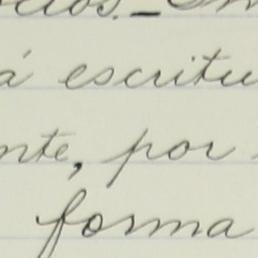 á escritu
nte, por
forma